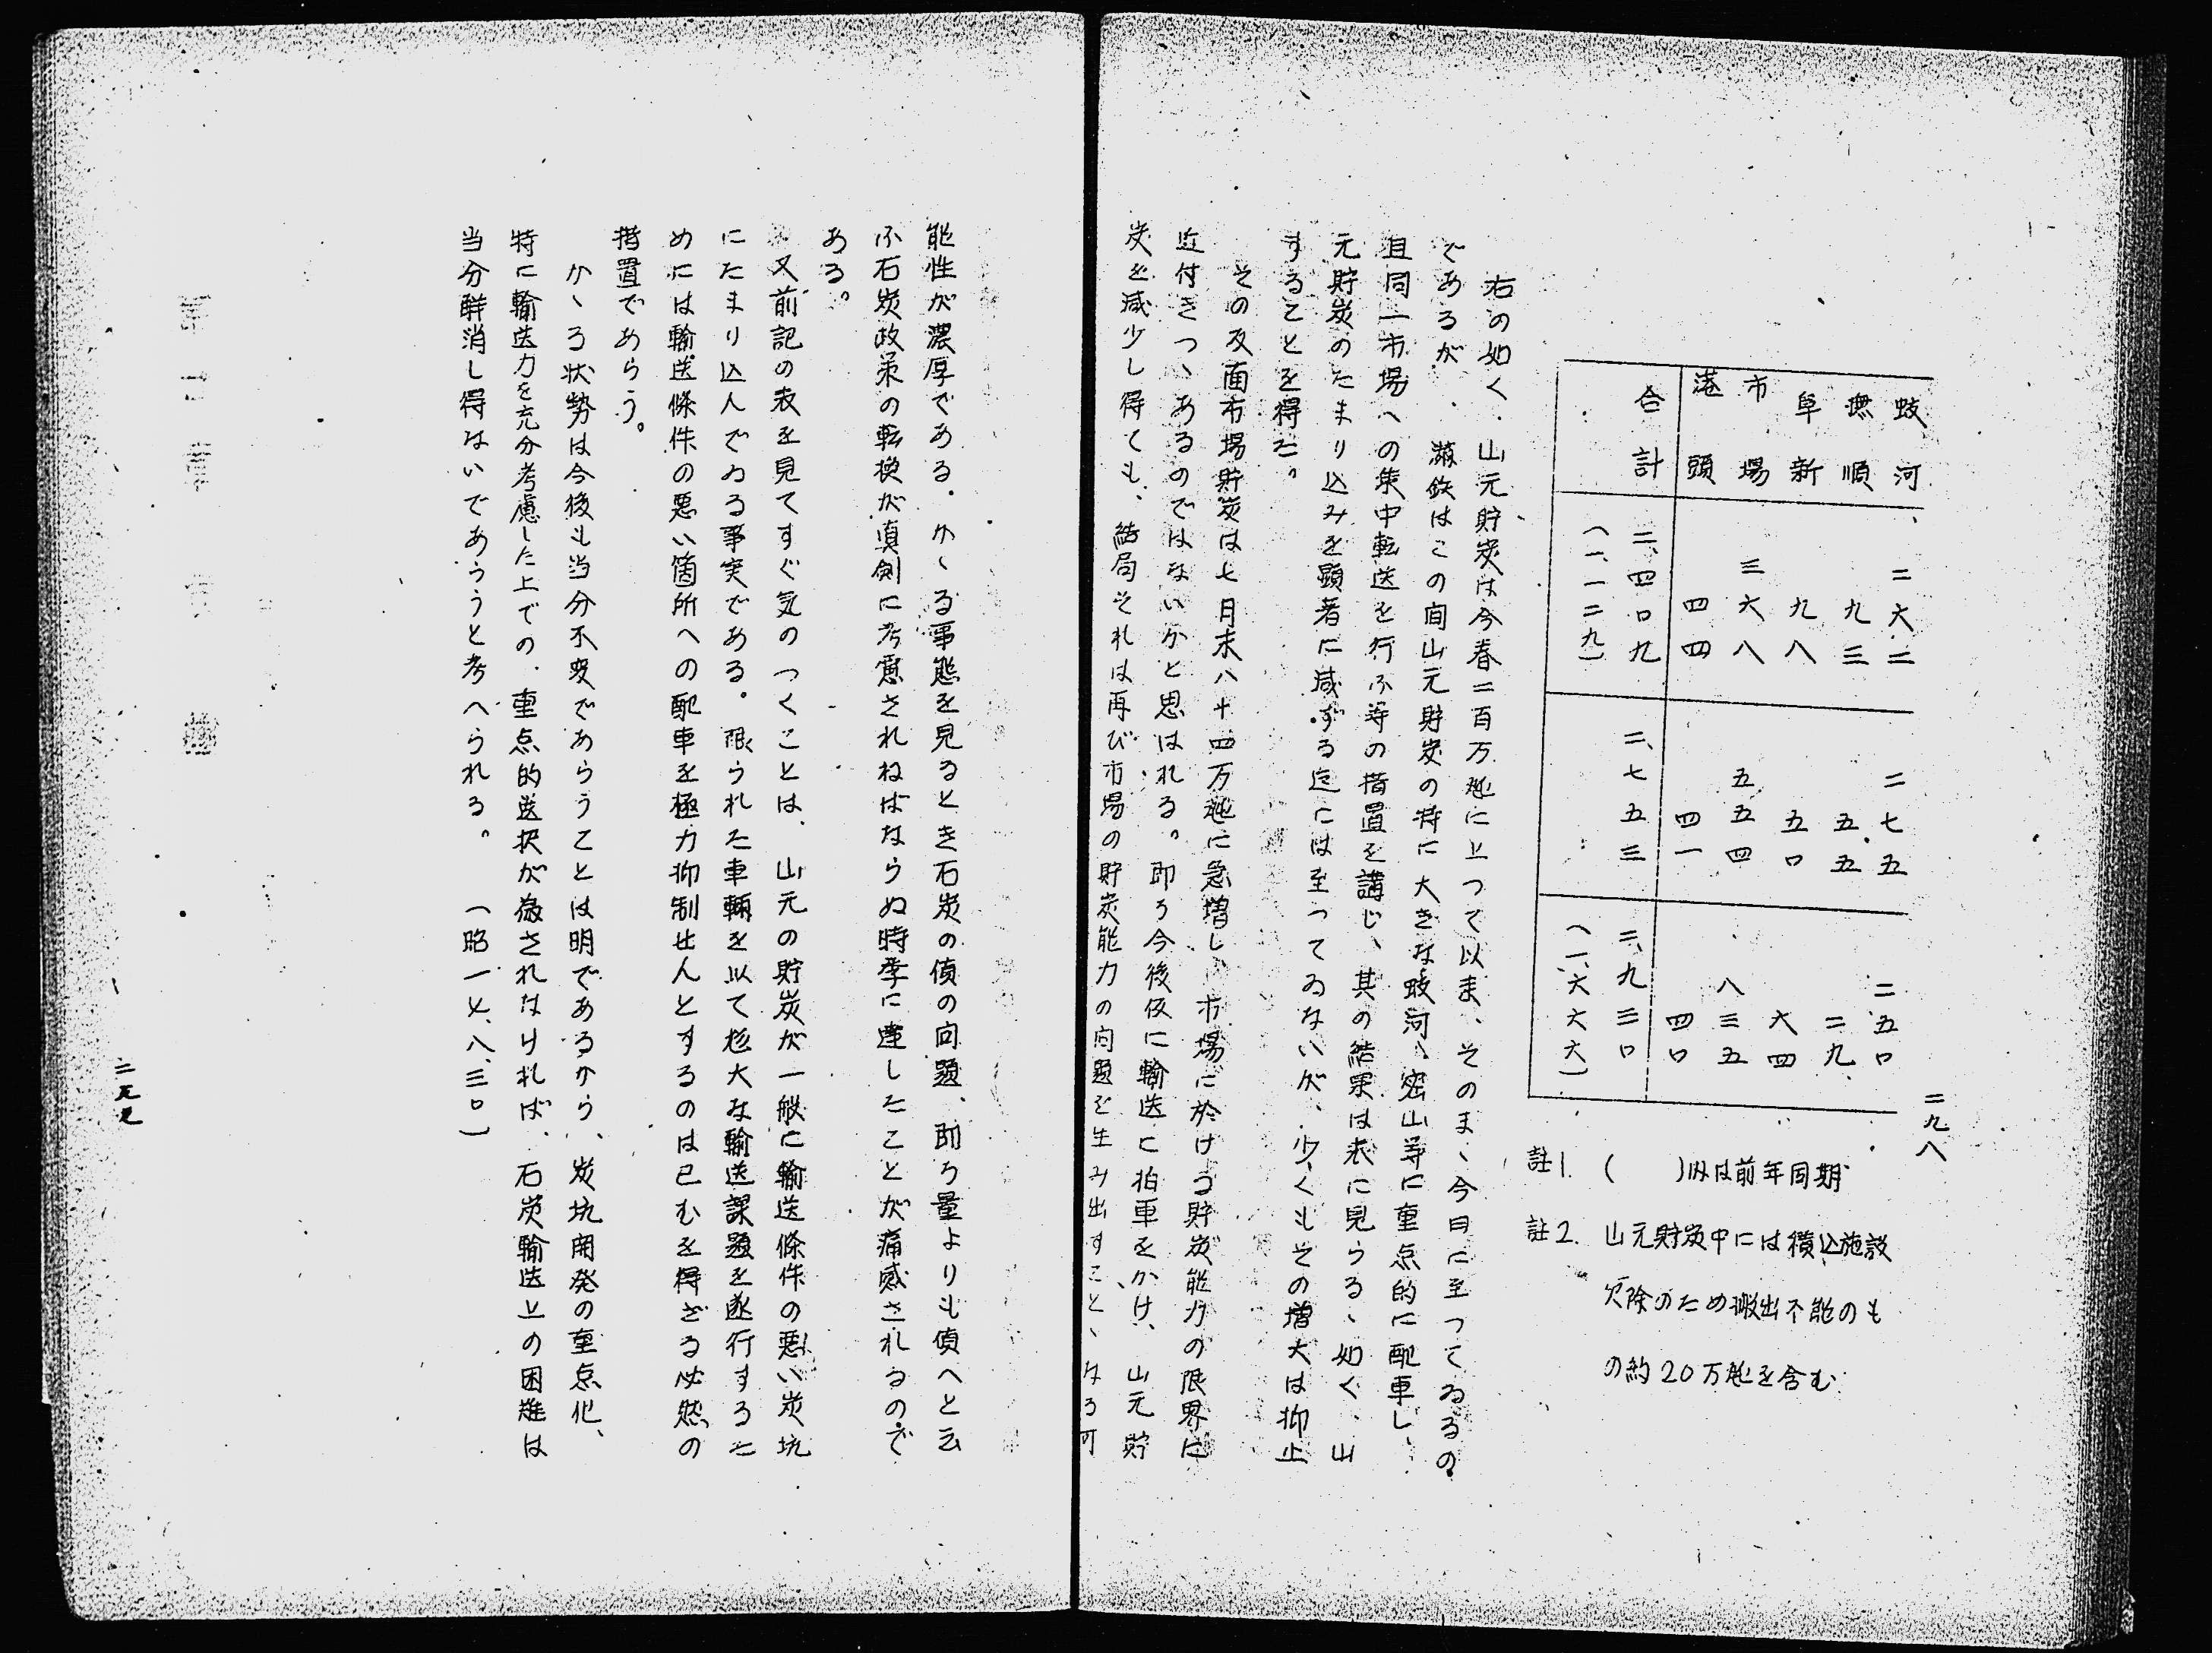 二九八
蛟河　二六二　二七五　二五〇
撫順　九三　五五　二九
阜新　九八　五〇　六四
市場　三六八　五五四　八三五
港頭　四四　四一　四〇
合計　二、四〇九　二、七五三　二、九三〇
（一、一二九）　（一、六六六）
註1. (　　)内は前年同期
註2. 山元貯炭中には積込施設
欠除のため搬出不能のも
の約20万瓲を含む
右の如く、山元貯炭は今春二百万瓲に上つて以来、そのまゝ今日に至つてゐるの
であるが、満鉄はこの間山元貯炭の特に大きな蛟河、密山等に重点的に配車し、
且同一市場への集中転送を行ふ等の措置を講じ、其の結果は表に見らるゝ如く、山
元貯炭のたまり込みを顕著に減ずる迄には至つてゐないが、少くもその増大は抑止
することを得た。
その反面市場貯炭は七月末八十四万瓲に急増し、市場に於ける貯炭能力の限界に
近付きつゝあるのではないかと思はれる。即ち今後仮に輸送に拍車をかけ、山元貯
炭を減少し得ても、結局それは再び市場の貯炭能力の問題を生み出すことゝなる可
能性が濃厚である。かゝる事態を見るとき石炭の値の問題、即ち量よりも値へと云
ふ石炭政策の転換が真剣に考慮されねばならぬ時季に達したことが痛感されるので
ある。
又前記の表を見てすぐ気のつくことは、山元の貯炭が一般に輸送條件の悪い炭坑
にたまり込んでゐる事実である。限られた車輌を以て尨大な輸送課題を遂行するた
めには輸送條件の悪い箇所への配車を極力抑制せんとするのは已むを得ざる必然の
措置であらう。
かゝる状勢は今後も当分不変であらうことは明であるから、炭坑開発の重点化、
特に輸送力を充分考慮した上での、重点的選択が為されなければ、石炭輸送上の困難は
当分解消し得ないであらうと考へられる。（昭一七、八、三〇）
二九九